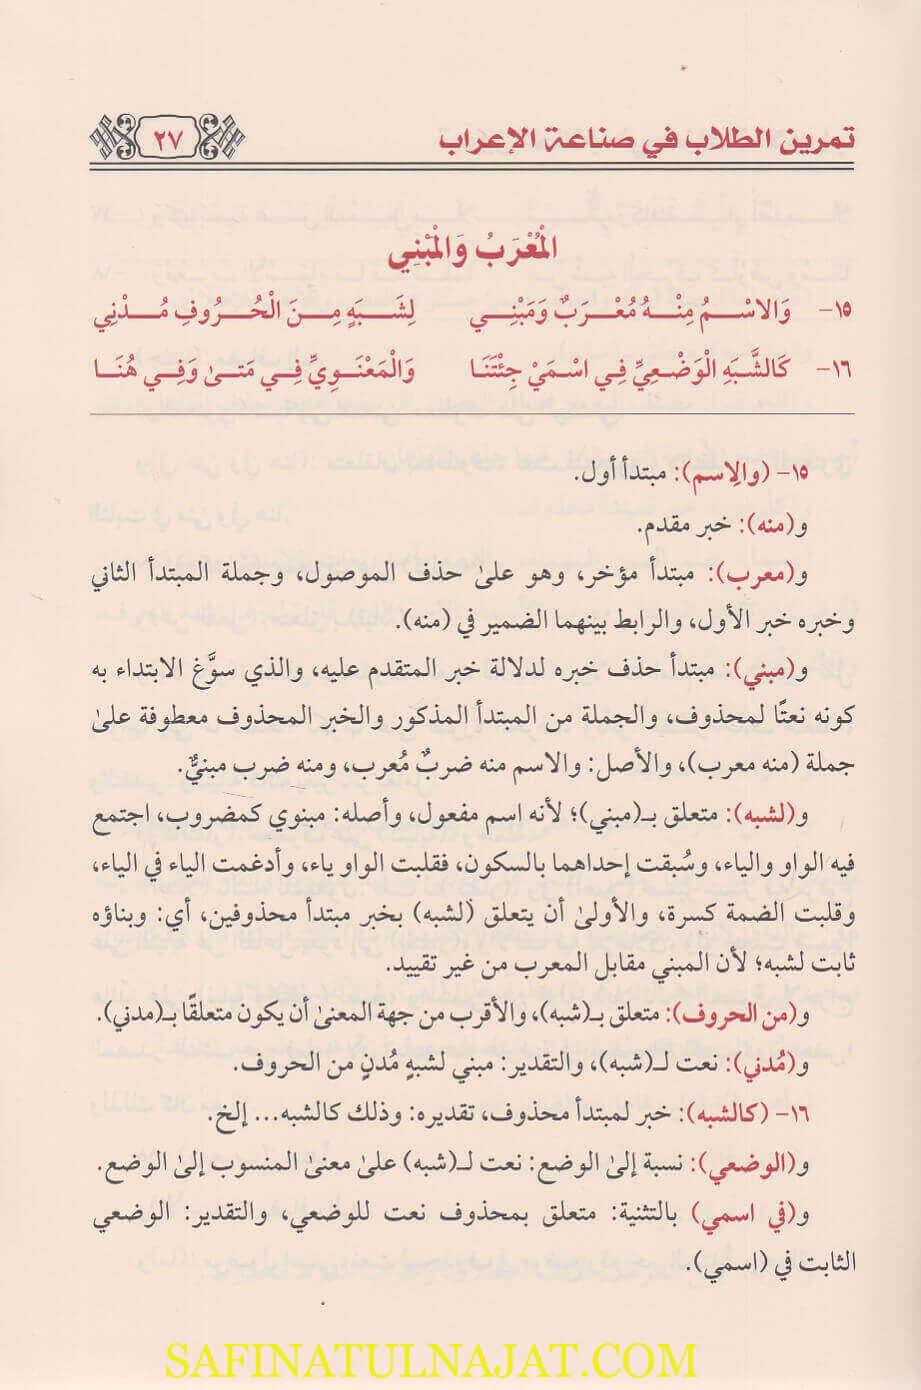 تمرين الطلاب في صناعة الإعراب
٢٧
الْمُعْرَبُ وَالْمَبْنِي
١٥- وَالِاسْمُ مِنْهُ مُعْرَبٌ وَمَبْنِي لِشَبَهٍ مِنَ الْحُرُوفِ مُدْنِي
١٦- كَالشَّبَهِ الْوَضْعِيِّ فِي اسْمَيْ جِئْتَنَا وَالْمَعْنَوِيِّ فِي مَتَىٰ وَفِي هُنَا
١٥- (والِاسم): مبتدأ أول.
و(منه): خبر مقدم.
و(معرب): مبتدأ مؤخر، وهو علىٰ حذف الموصول، وجملة المبتدأ الثاني
وخبره خبر الأول، والرابط بينهما الضمير في (منه).
و(مبني): مبتدأ حذف خبره لدلالة خبر المتقدم عليه، والذي سوَّغ الابتداء به
كونه نعتًا لمحذوف، والجملة من المبتدأ المذكور والخبر المحذوف معطوفة علىٰ
جملة (منه معرب)، والأصل: والاسم منه ضربٌ مُعرب، ومنه ضرب مبنيٌّ.
و(لشبه): متعلق بـ(مبني)؛ لأنه اسم مفعول، وأصله: مبنوي كمضروب، اجتمع
فيه الواو والياء، وسُبقت إحداهما بالسكون، فقلبت الواو ياء، وأدغمت الياء في الياء،
وقلبت الضمة كسرة، والأولىٰ أن يتعلق (لشبه) بخبر مبتدأ محذوفين، أي: وبناؤه
ثابت لشبه؛ لأن المبني مقابل المعرب من غير تقييد.
و(من الحروف): متعلق بـ(شبه)، والأقرب من جهة المعنىٰ أن يكون متعلقًا بـ(مدني).
و(مُدني): نعت لـ(شبه)، والتقدير: مبني لشبهٍ مُدنٍ من الحروف.
١٦- (كالشبه): خبر لمبتدأ محذوف، تقديره: وذلك كالشبه... إلخ.
و(الوضعي): نسبة إلىٰ الوضع: نعت لـ(شبه) علىٰ معنىٰ المنسوب إلىٰ الوضع.
و(في اسمي) بالتثنية: متعلق بمحذوف نعت للوضعي، والتقدير: الوضعي
الثابت في (اسمي).
SAFINATULNAJAT.COM